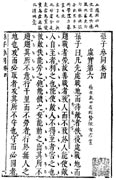 孫子參同卷四
虛實第六
孫子曰凡先處戰地而待敵者佚後處戰地而
趨戰者勞故善戰者致人而不致於人能使敵
人自至者利之也能使敵人不得至者害之也
故敵佚能勞之飽能饑之安能動之出其所
趨趨其所不意行千里而不勞者行於無人之
地也攻而必取者攻其所不守也守而必固者